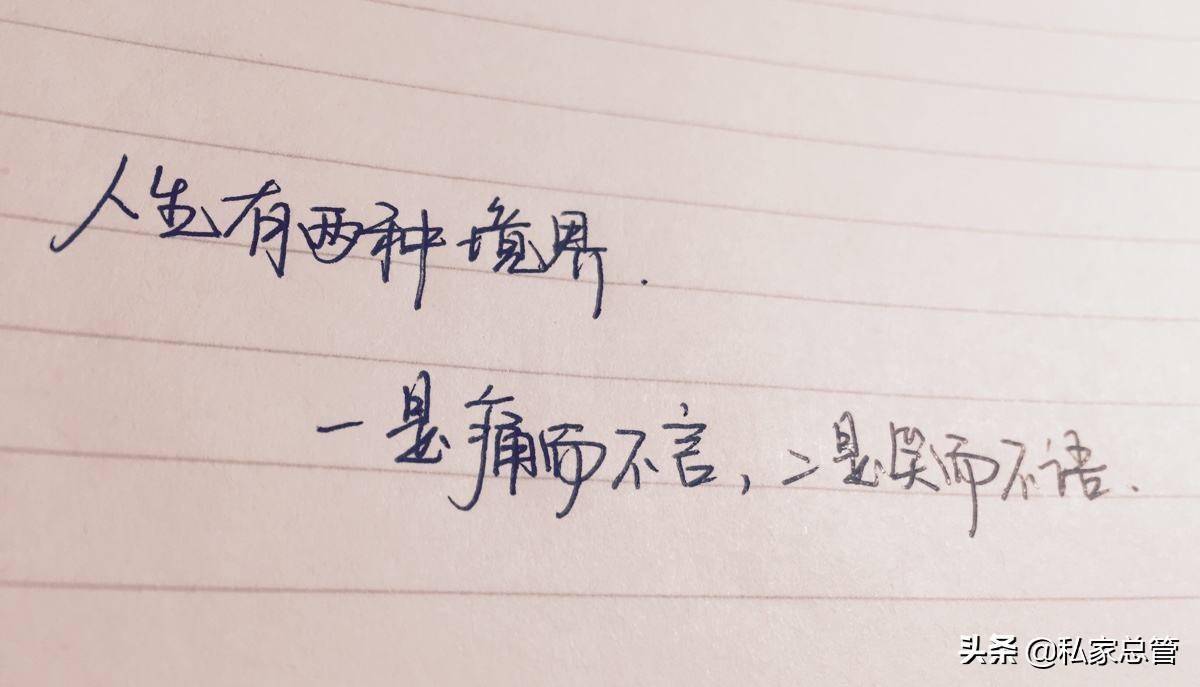 人生有两种境界.
一是痛而不言,二是笑而不语.
头条 @私家总管